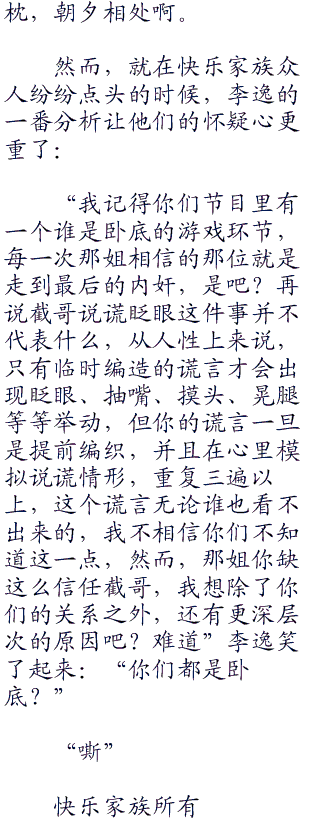 枕，朝夕相处啊。
然而，就在快乐家族众
人纷纷点头的时候，李逸的
一番分析让他们的怀疑心更
重了：
“我记得你们节目里有
一个谁是卧底的游戏环节，
每一次那姐相信的那位就是
走到最后的内奸，是吧？再
说截哥说谎眨眼这件事并不
代表什么，从人性上来说，
只有临时编造的谎言才会出
现眨眼、抽嘴、摸头、晃腿
等等举动，但你的谎言一旦
是提前编织，并且在心里模
拟说谎情形，重复三遍以
上，这个谎言无论谁也看不
出来的，我不相信你们不知
道这一点，然而，那姐你缺
这么信任截哥，我想除了你
们的关系之外，还有更深层
次的原因吧？难道”李逸笑
了起来：“你们都是卧
底？”
“嘶”
快乐家族所有